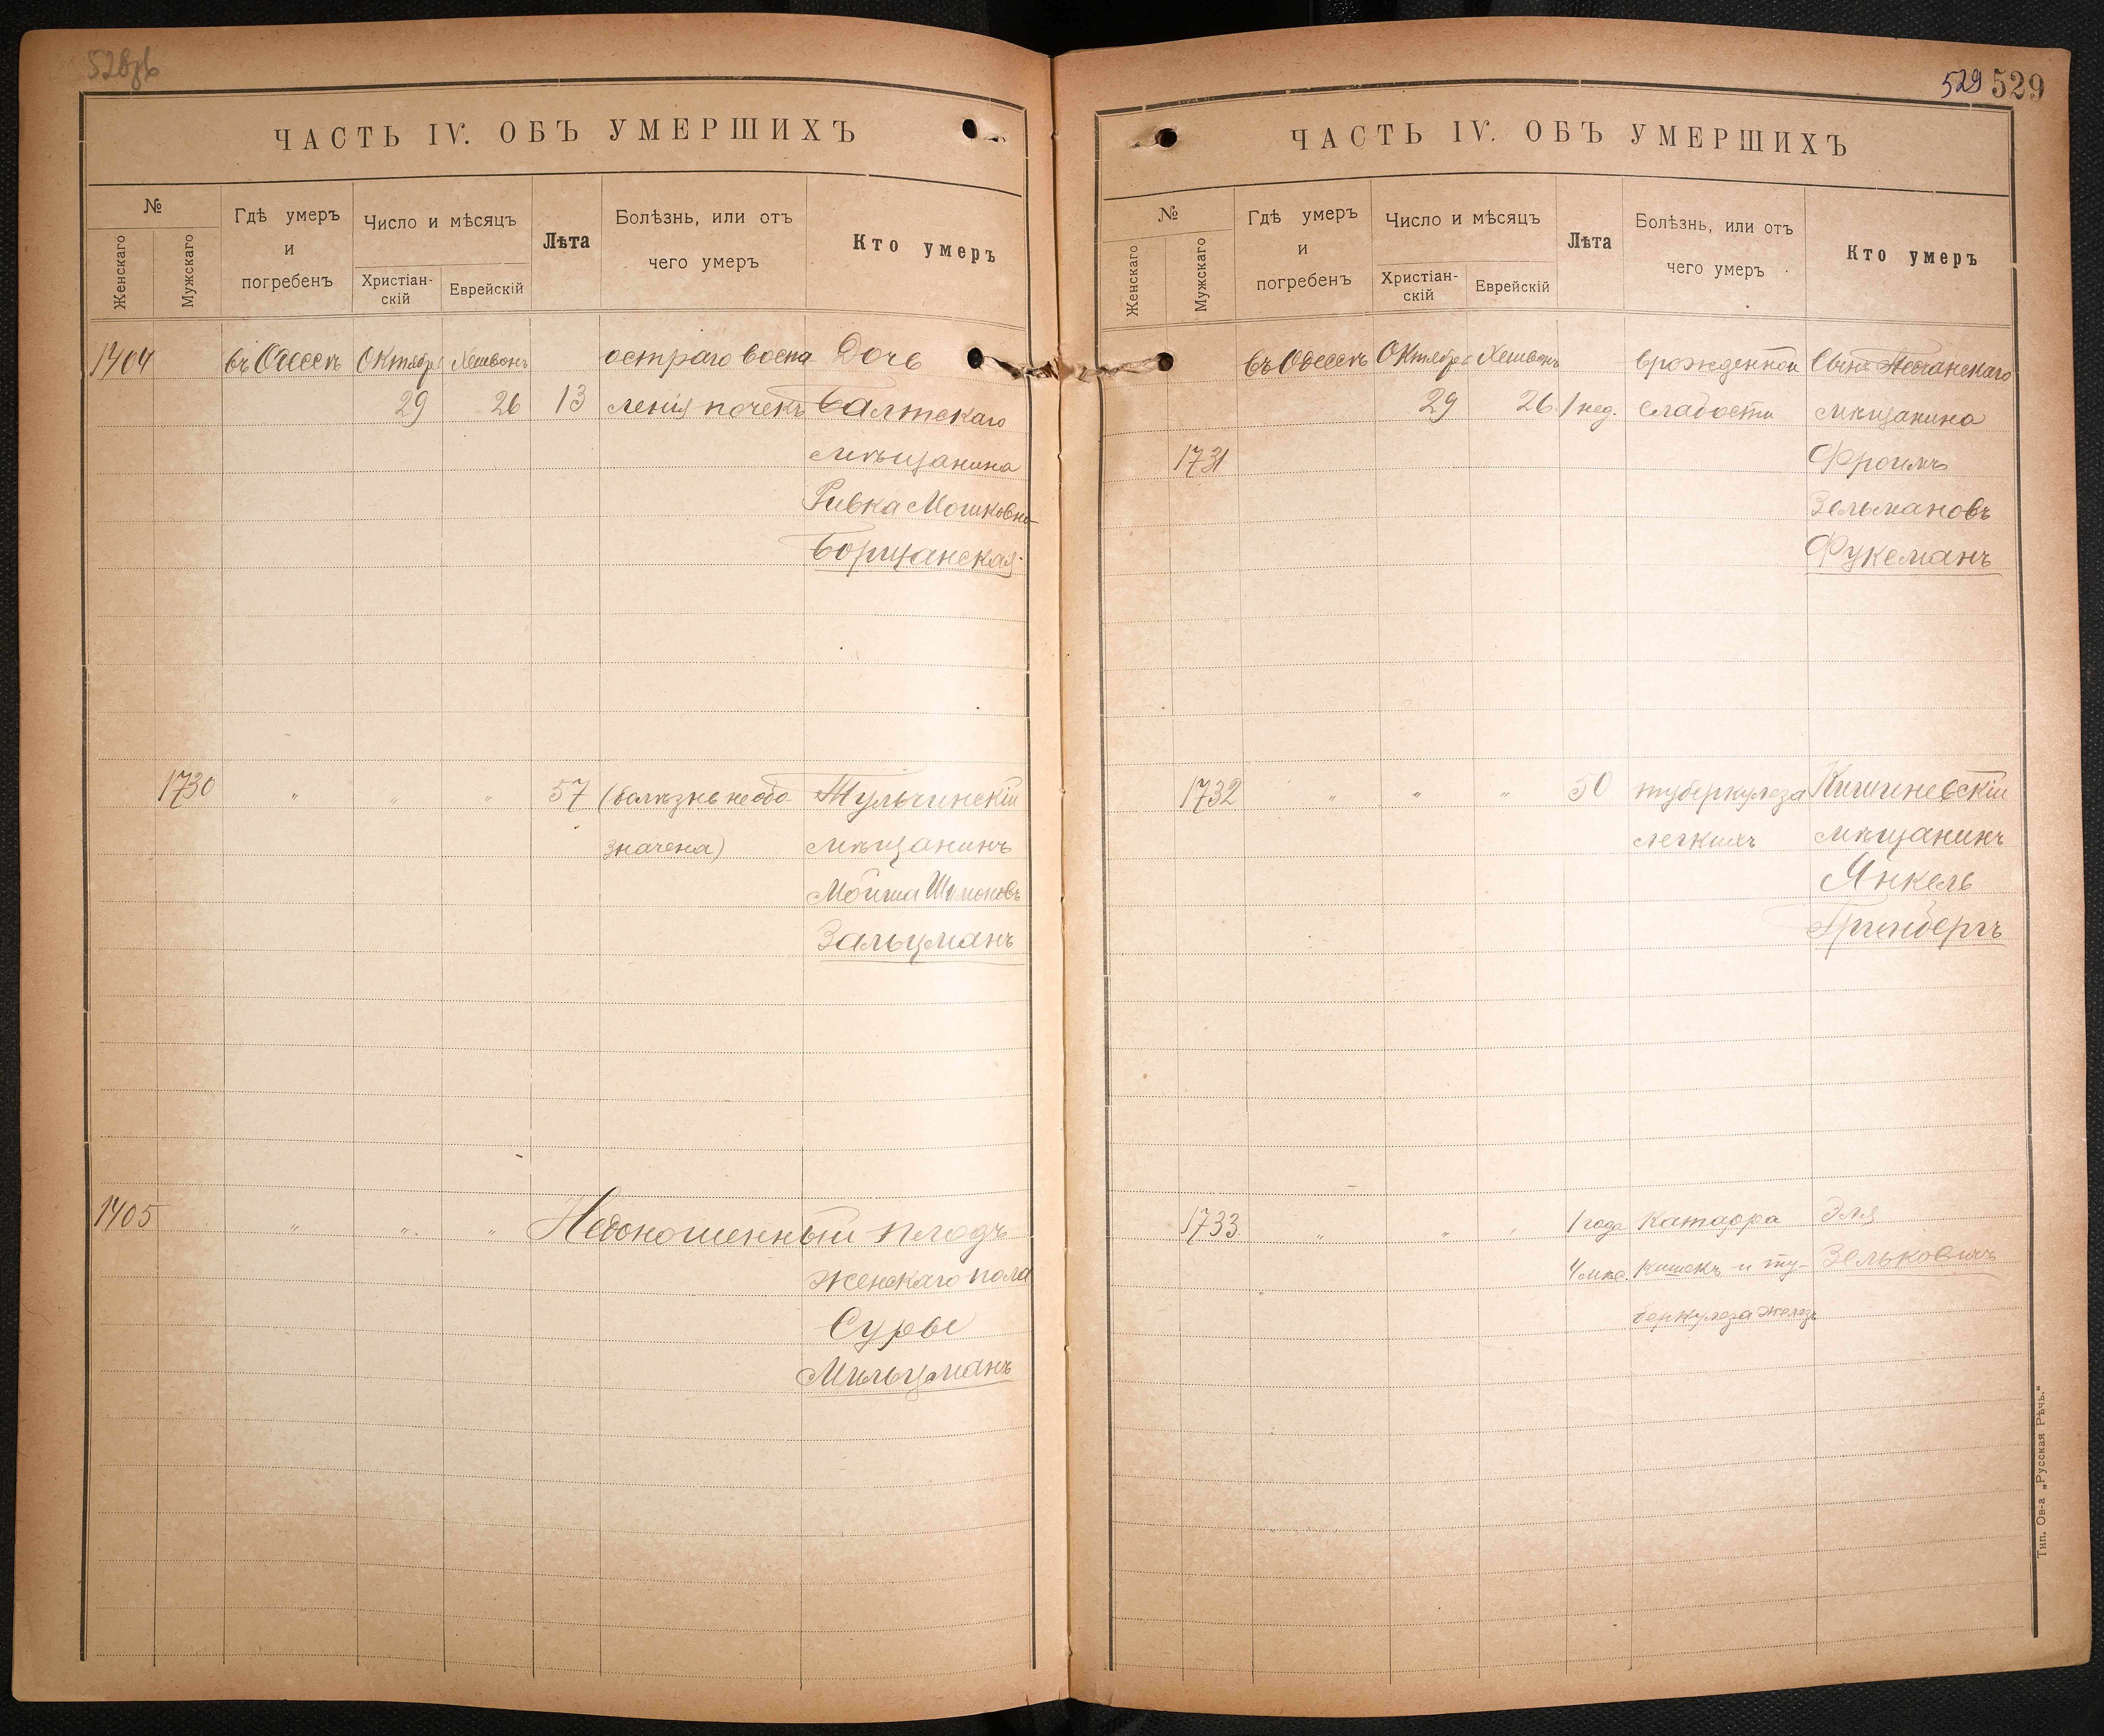 528об
ЧАСТЬ IV. ОБЪ УМЕРШИХЪ
№
Женскаго
Мужскаго
Гдѣ умеръ
и
погребенъ
Число и мѣсяцъ
Христіан-
скій
Еврейскій
Лѣта
Болѣзнь, или отъ
чего умеръ
Кто умеръ
1404 въ Одессѣ Октябр Хешвонъ остраго воспа Дочь
29 26 13 ленія почекъ Балтскаго
мѣщанина
Ривка Мошковна
Борщанская
1730 " " " 57 (болѣзнь необо- Тульчинскій
значена) мѣщанинъ
Мойша Шимоновъ
Зальцманъ
1405 " " " Недоношенный плодъ
женскаго пола
Суры
Мильцманъ
529 529
ЧАСТЬ IV. ОБЪ УМЕРШИХЪ
№
Женскаго
Мужскаго
Гдѣ умеръ
и
погребенъ
Число и мѣсяцъ
Христіан-
скій
Еврейскій
Лѣта
Болѣзнь, или отъ
чего умеръ
Кто умеръ
въ Одессѣ Октябрь Хешвонъ врожденной Сынъ
29 26 1 нед. слабости мѣщанина
1731 Фроимъ
Зельмановъ
Фуксманъ
1732 " " " 50 туберкулеза Кишиневскій
легкихъ мѣщанинъ
Янкель
Гринбергъ
1733 " " " 1 года Катарра Эля
4 мѣс. кишекъ и ту- Зельковичъ
беркулеза железъ
Тип. Ов-а „Русская Рѣчь."